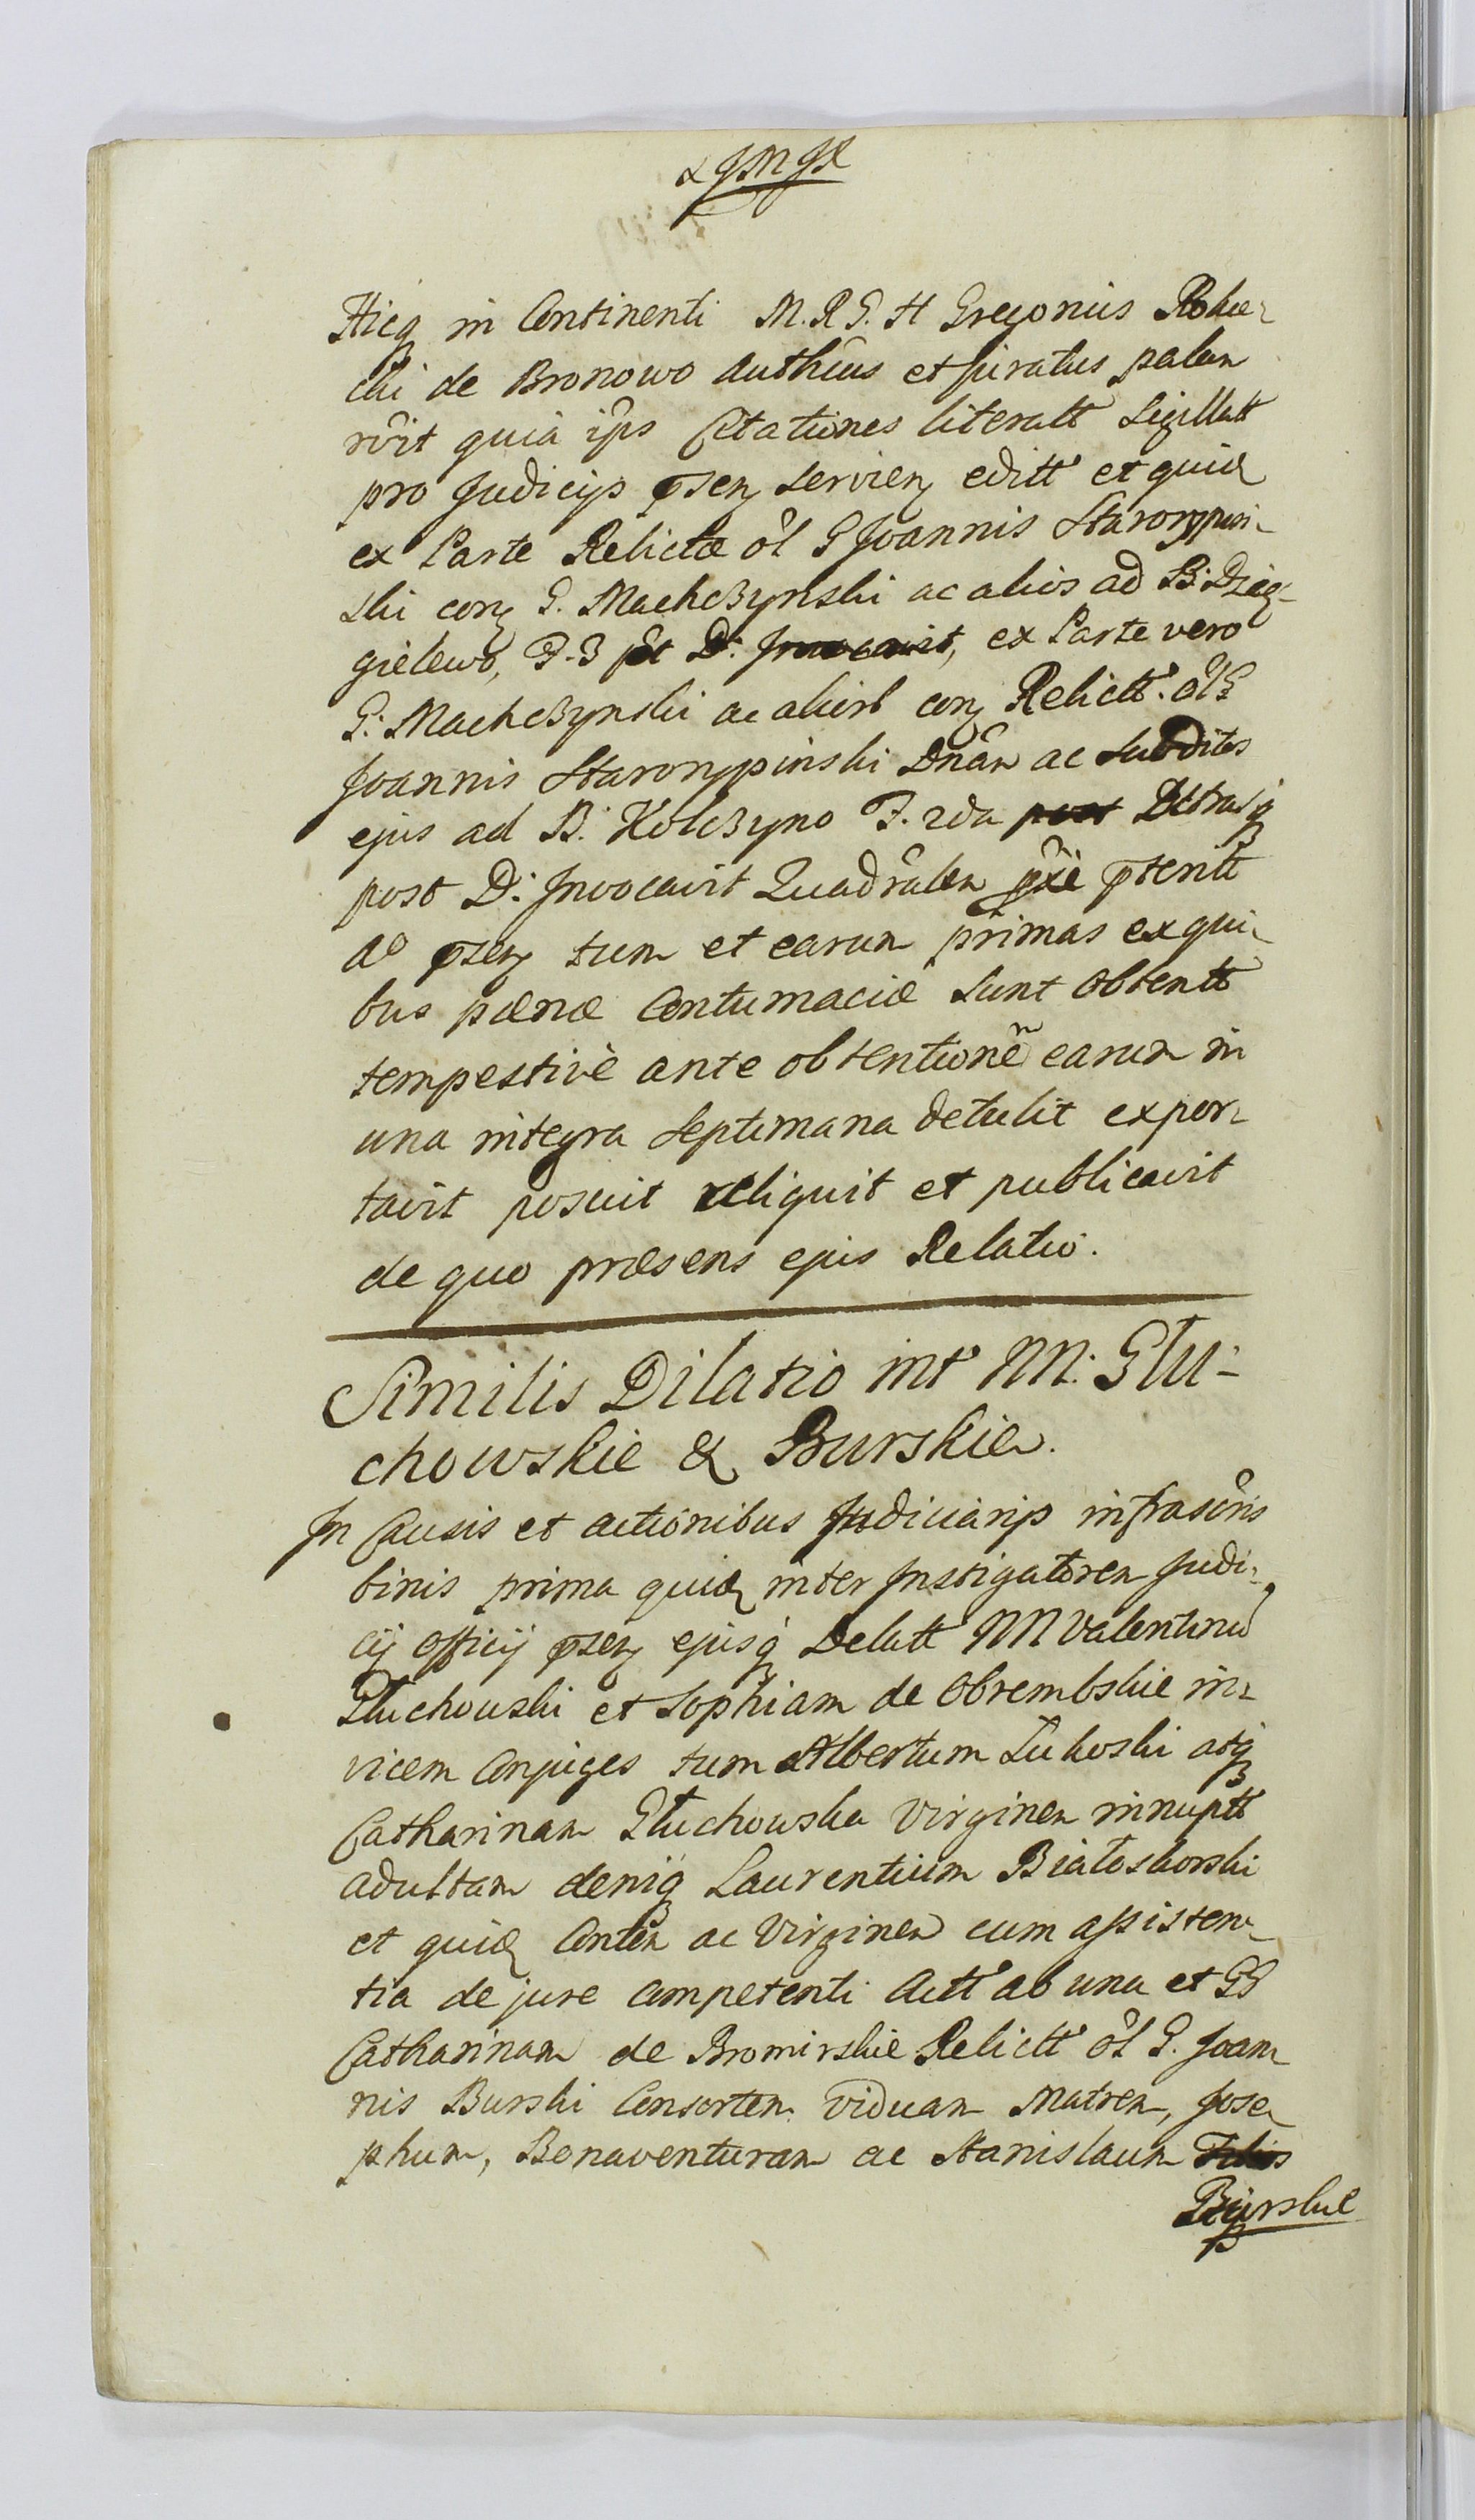 Hicq in Continenti M. R G. H Gregorius
cki de Bronowo Authcus et juratus palam
rvit quia ips Citationes literatt Sigillatt
pro Judicijs psen servien editt et quid
ex Parte Relictæ ol G Joannis Staroryppin-
ski con G. Machczynski ac alios ad B: Dzię-
gielewo, F. 3 pt D: Invocavit, ex Parte vero
G. Machczynski ac alior con Relictt. ol G
Joannis Starorypinski Dnam ac Subditos
ejus ad B: Kolczyno F. 2da post
post D: Invocavit Quadralem pxe pteritt
ad psen tum et earum primas ex qui-
bus pænæ Contumaciæ sunt obtentt
tempestivè ante obtentionem earum in
una integra Septimana detulit expor-
tavit posuit reliquit et publicavit
de quo præsens ejus Relatio.
Similis Dilatio int MM: Głu-
chowskie & Burskie.
In Causis et actionibus Judiciarijs infrascris
binis prima quid inter Instigatorem Judi-
cij Officij psen ejusq Delatt MM Valentinu
Głuchowski et Sophiam de Obrembskie in-
vicem Conjuges tum Albertum Łukoski atq
Catharinam Głuchowska Virginem innuptt
adultam deniq Laurentium Białoskorski
et quid Conten ac Virginem cum assisten-
tia de jure Competenti Actt ab una et GG
Catharinam de Bromirskie Relictt ol G. Joan-
nis Burski Consortem viduam Matrem, Jose-
phum, Bonaventuram ac Stanislaum Filios
Burskie